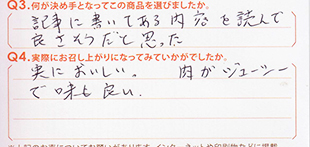 Q3.何が決め手となってこの商品を選びましたか。
記事に書いてある内容を読んで
良さそうだと思った
Q4.実際にお召し上がりになってみていかがでしたか。
実においしい。 肉がジューシー
で味も良い.